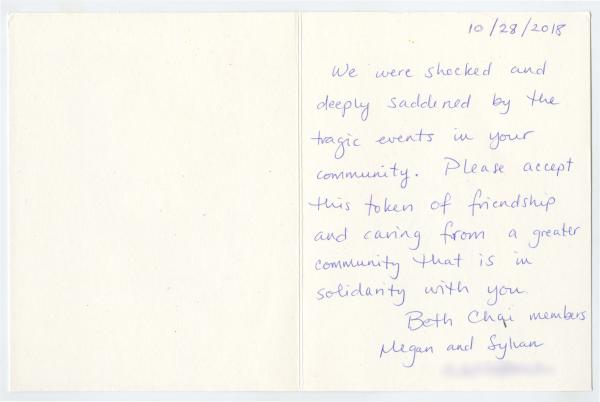 10/28/2018
We were shocked and
deeply saddened by the
tragic events in your
community. Please accept
this token of friendship
and caring from a greater
community that is in
solidarity with you.
Beth Chai members
Megan and Sylvan